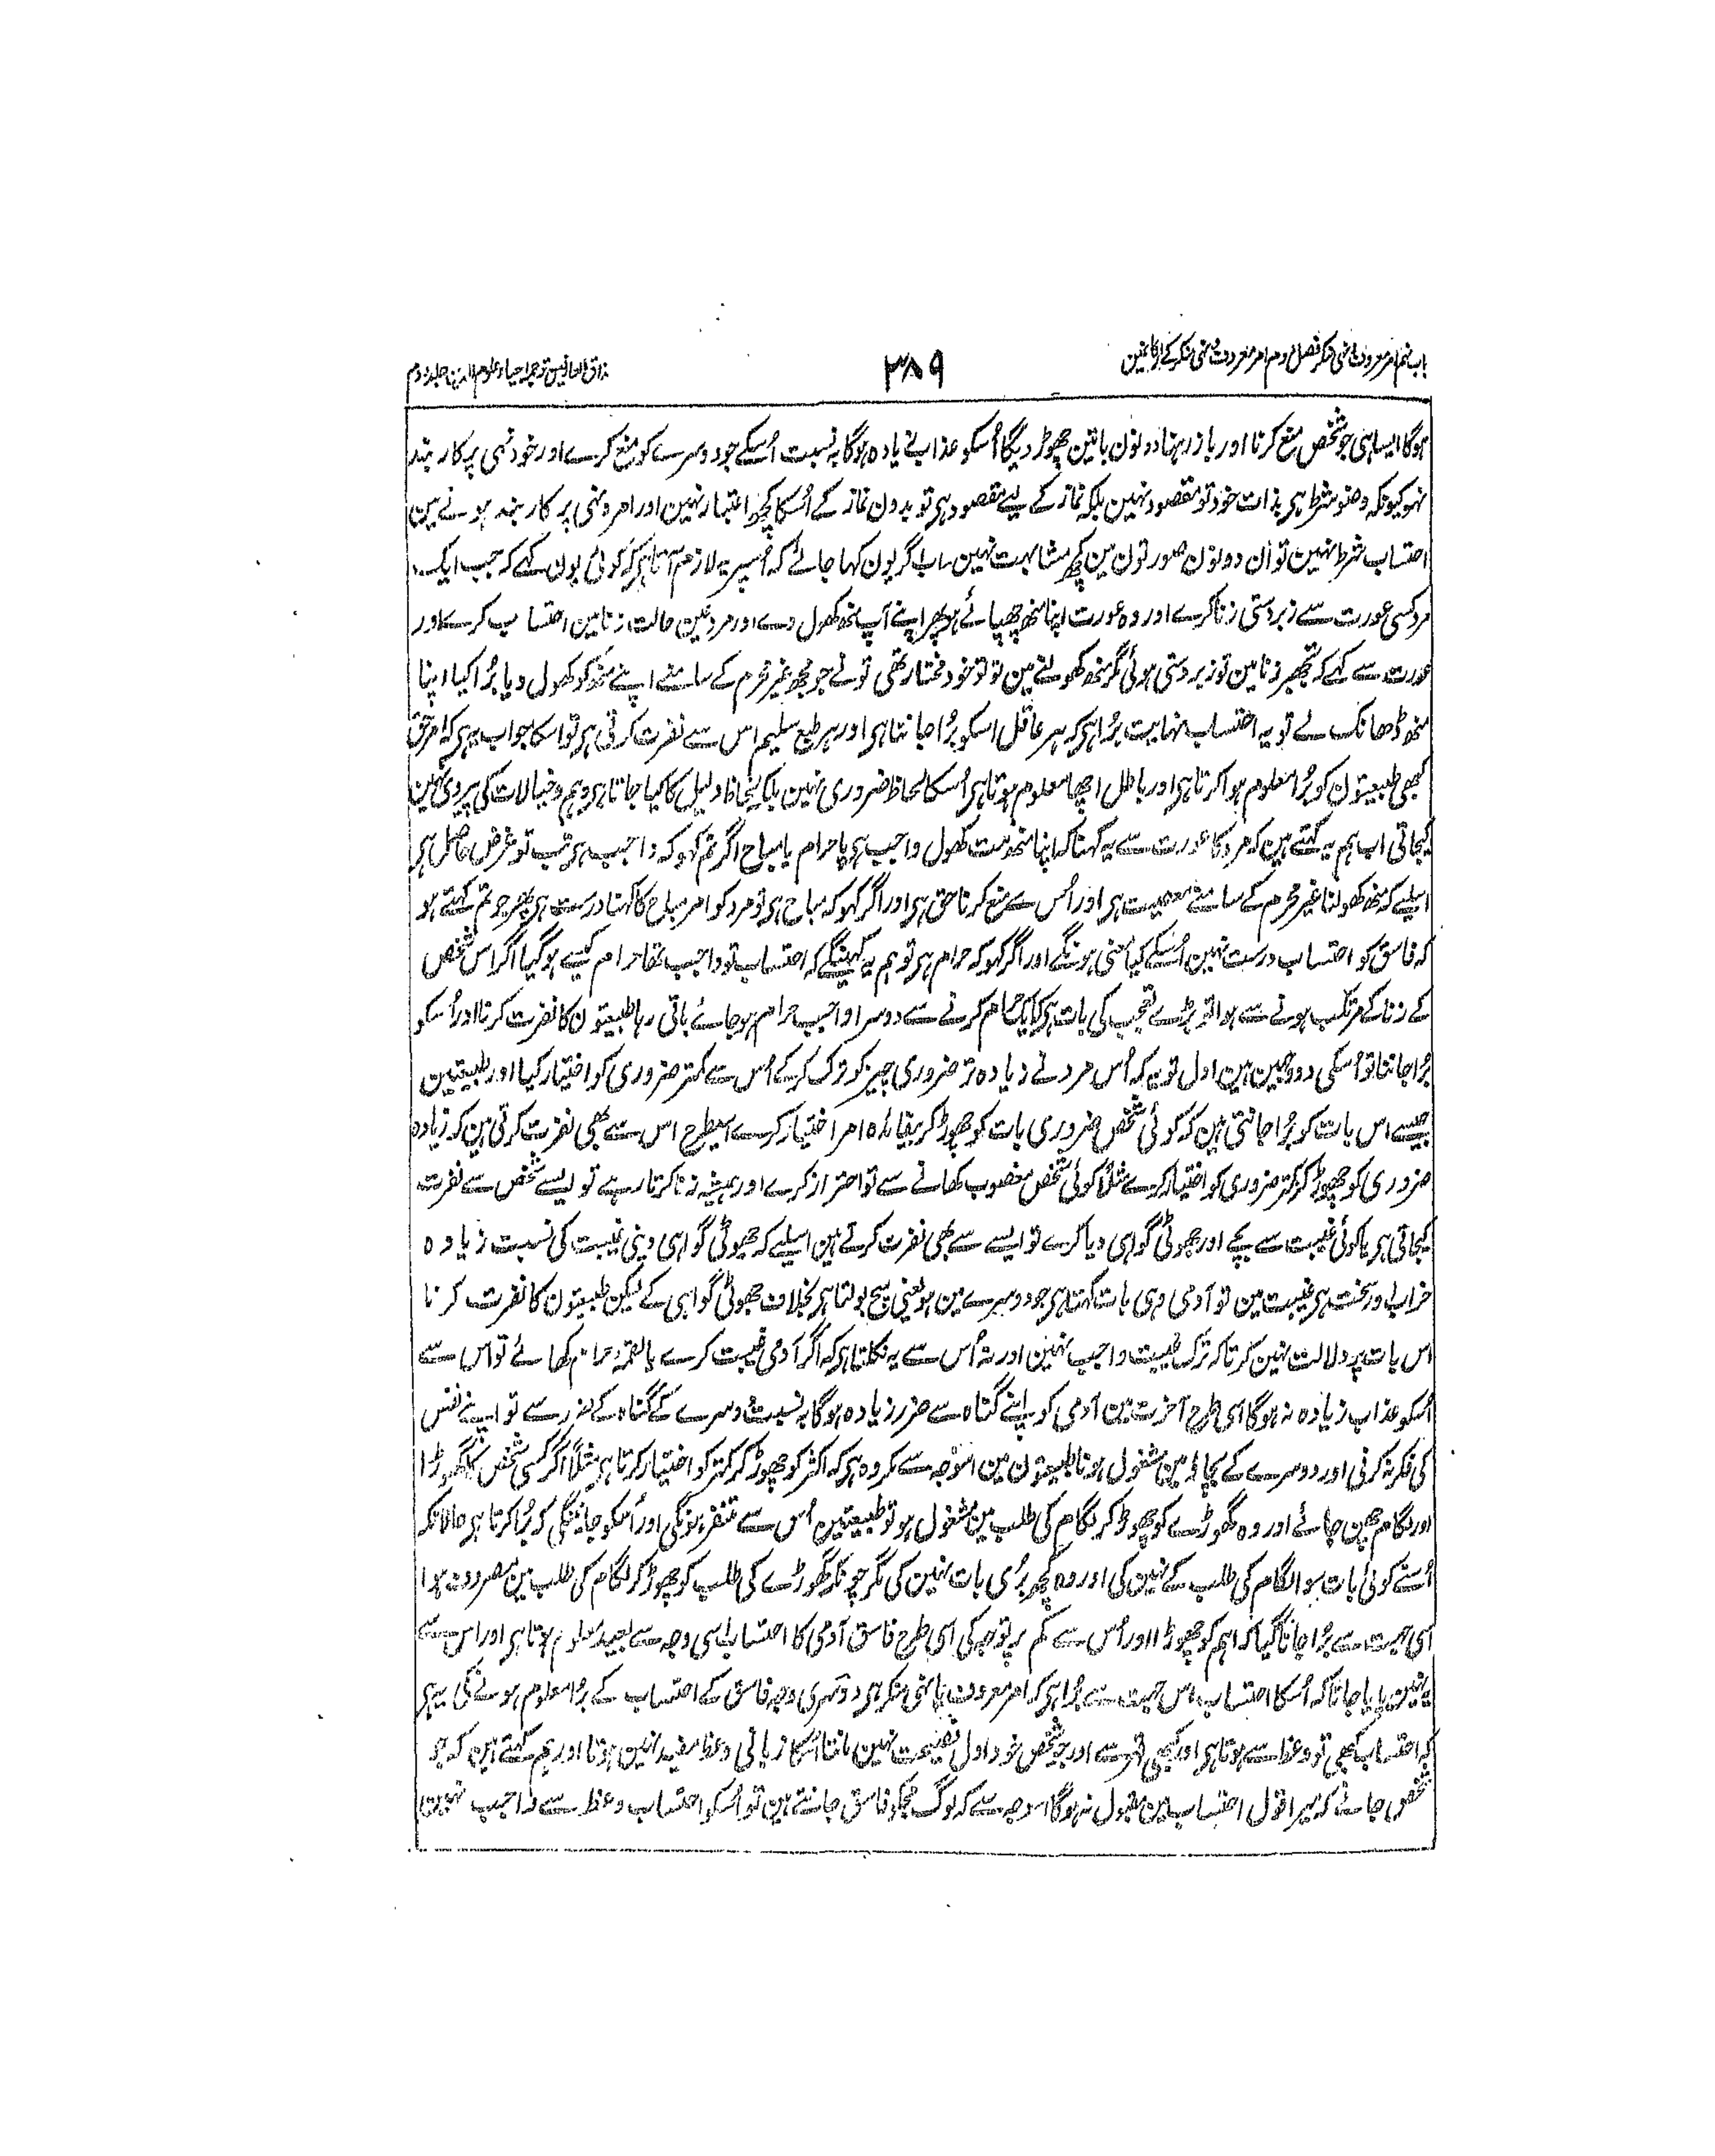 باب نہم امر معروف و نہی منکر فصل دوم امر معروف و نہی منکر کے ارکان مین
۳۸۹
مذاق العارفین ترجمہ احیاء علوم الدین جلد دوم
ہوگا ایسا ہی جو شخص منع کرنا اور باز رہنا دونون باتین چھوڑ دیگا اُسکو عذاب زیادہ ہوگا بہ نسبت اُسکے جو دوسرے کو منع کرے اور خود نہی پر کاربند
نہو کیونکہ وضو شرط ہی بذات خود تو مقصود نہین بلکہ نماز کے لیے مقصود ہی تو بدون نماز کے اُسکا کچھ اعتبار نہین اور امر و نہی پر کاربند ہونے مین
احتساب شرط نہین تو ان دونون صورتون مین کچھ مشابہت نہین۔ اب اگر یون کہا جائے کہ اُسپر یہ لازم آتا ہی کہ کوئی یون کہے کہ جب ایک
مرد کسی عورت سے زبردستی زنا کرے اور وہ عورت اپنا منھ چھپائے ہو پھر اپنے آپ منھ کھول دے اور مرد عین حالت زنا مین احتساب کرے اور
عورت سے کہے کہ تجھپر زنا مین تو زبردستی ہوئی مگر منھ کھولنے مین تو تو خود مختار تھی تو نے جو مجھ غیر محرم کے سامنے اپنے منھ کو کھول دیا بُرا کیا اپنا
منھ ڈھانک لے تو یہ احتساب نہایت بُرا ہی کہ ہر عاقل اسکو بُرا جانتا ہی اور ہر طبع سلیم اس سے نفرت کرتی ہی تو اسکا جواب یہ ہی کہ امر حق
کبھی طبیعتون کو بُرا معلوم ہوا کرتا ہی اور باطل اچھا معلوم ہوتا ہی اُسکا لحاظ ضروری نہین بلکہ لحاظ دلیل کا کیا جاتا ہی وہم و خیالات کی پیروی نہین
کیجاتی اب ہم یہ کہتے ہین کہ مرد کا عورت سے یہ کہنا کہ اپنا منھ مت کھول واجب ہی یا حرام یا مباح اگر تم کہو کہ واجب ہی تب تو غرض حاصل ہی
اسلیے کہ منھ کھولنا غیر محرم کے سامنے معصیت ہی اور اُس سے منع کرنا حق ہی اور اگر کہو کہ مباح ہی تو مرد کو امر مباح کا کہنا درست ہی پھر جو تم کہتے ہو
کہ فاسق کو احتساب درست نہین اُسکے کیا معنی ہونگے اور اگر کہو کہ حرام ہی تو ہم یہ کہینگے کہ احتساب تو واجب تھا حرام کیسے ہو گیا اگر اس شخص
کے زنا کے مرتکب ہونے سے ہوا تو بڑے تعجب کی بات ہی کہ ایک حرام کرنے سے دوسرا واجب حرام ہو جائے باقی رہا طبیعتون کا نفرت کرنا اور اُسکو
بُرا جاننا تو اُسکی دو وجہین ہین اول تو یہ کہ اُس مرد نے زیادہ تر ضروری چیز کو ترک کرکے اُس سے کمتر ضروری کو اختیار کیا اور طبیعتین
جیسے اس بات کو بُرا جانتی ہین کہ کوئی شخص ضروری بات کو چھوڑ کر بیفائدہ امر اختیار کرے اسیطرح اس سے بھی نفرت کرتی ہین کہ زیادہ
ضروری کو چھوڑ کر کمتر ضروری کو اختیار کرے مثلاً کوئی شخص مغصوب کھانے سے تو احتراز کرے اور ہمیشہ زنا کرتا رہے تو ایسے شخص سے نفرت
کیجاتی ہی یا کوئی غیبت سے بچے اور جھوٹی گواہی دیا کرے تو ایسے سے بھی نفرت کرتے ہین اسلیے کہ جھوٹی گواہی دینی غیبت کی نسبت زیادہ
خراب اور سخت ہی غیبت مین تو آدمی وہی بات کہتا ہی جو دوسرے مین ہو یعنی سچ بولتا ہی بخلاف جھوٹی گواہی کے لیکن طبیعتون کا نفرت کرنا
اس بات پر دلالت نہین کرتا کہ ترک غیبت واجب نہین اور نہ اُس سے یہ نکلتا ہی کہ اگر آدمی غیبت کرے یا لقمہ حرام کھائے تو اس سے
اُسکو عذاب زیادہ نہ ہوگا اسی طرح آخرت مین آدمی کو اپنے گناہ سے ضرر زیادہ ہوگا بہ نسبت دوسرے کے گناہ کے ضرر سے تو اپنے نفس
کی فکر نہ کرنی اور دوسرے کے بچاؤ مین مشغول ہونا طبیعتون مین اسوجہ سے مکروہ ہی کہ اکثر کو چھوڑ کر کمتر کو اختیار کرتا ہی مثلاً اگر کسی شخص کا گھوڑا
اور لگام چھن جائے اور وہ گھوڑے کو چھوڑ کر لگام کی طلب مین مشغول ہو تو طبیعتین اُس سے متنفر ہونگی اور اُسکو جانینگی کہ بُرا کرتا ہی حالانکہ
اُسنے کوئی بات سوا لگام کی طلب کے نہین کی اور وہ کچھ بُری بات نہین کی مگر چونکہ گھوڑے کی طلب کو چھوڑ کر لگام کی طلب مین مصروف ہوا
اسی جہت سے بُرا جانا گیا کہ اہم کو چھوڑا اور اُس سے کم پر توجہ کی اسی طرح فاسق آدمی کا احتساب اسی وجہ سے بعید معلوم ہوتا ہی اور اس سے
یہ نہین پایا جاتا کہ اُسکا احتساب اس جہت سے بُرا ہی کہ امر معروف یا نہی منکر ہی دوسری وجہ فاسق کے احتساب کے بُرا معلوم ہونے کی یہ ہی
کہ احتساب کبھی تو وعظ سے ہوتا ہی اور کبھی قہر سے اور جو شخص خود اول نصیحت نہین مانتا اُسکا زبانی وعظ مفید نہین ہوتا اور ہم کہتے ہین کہ جو
شخص جانے کہ میرا قول احتساب مین مقبول نہ ہوگا اسوجہ سے کہ لوگ مجکو فاسق جانتے ہین تو اُسکو احتساب وعظ سے واجب نہین